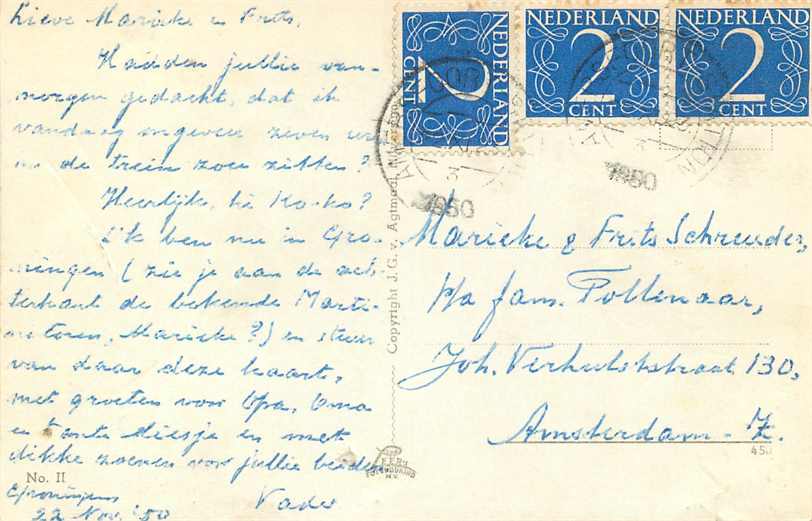 Lieve Marieke en Frits,
Hadden jullie van-
morgen gedacht, dat ik
vandaag ongeveer zeven uur
in de trein zou zitten?
Heerlijk, hè Ko-ko?
Ik ben nu in Gro-
ningen (zie je aan de ach-
terkant de bekende Marti-
nitoren, Marieke?) en stuur
van daar deze kaart,
met groeten voor Opa, Oma
en tante Liesje en met
dikke zoenen voor jullie beiden
Vader
Groningen
22 Nov. '50
No. II
Copyright J.G. v. Agtmaal,
NEDERLAND
2
CENT
NEDERLAND
2
CENT
NEDERLAND
2
CENT
1950
1950
Marieke & Frits Schreuder,
p/a fam. Pollenaar,
Joh. Verhulststraat 130,
Amsterdam-Z.